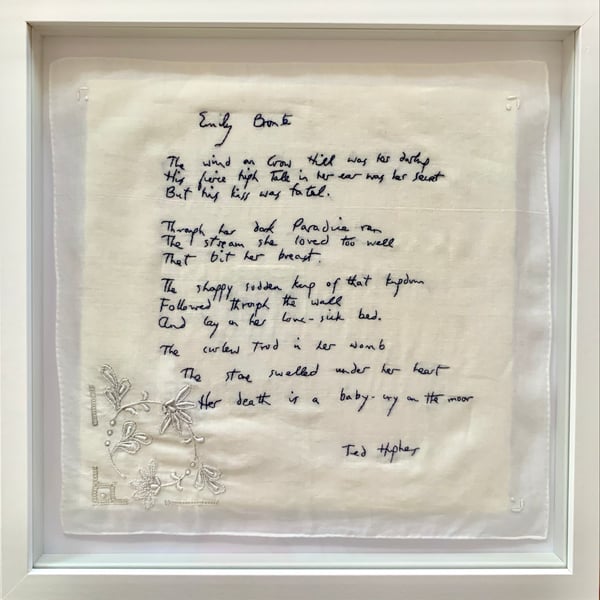 Emily Bronte
The wind on Crow Hill was her darling
His fierce high tale in her ear was her secret
But his kiss was fatal.
Through her dark Paradise ran
The stream she loved too well
That bit her breast.
The shaggy sodden king of that kingdom
Followed through the wall
And lay on her love-sick bed.
The curlew trod in her womb
The stone swelled under her heart
Her death is a baby-cry on the moor
Ted Hughes